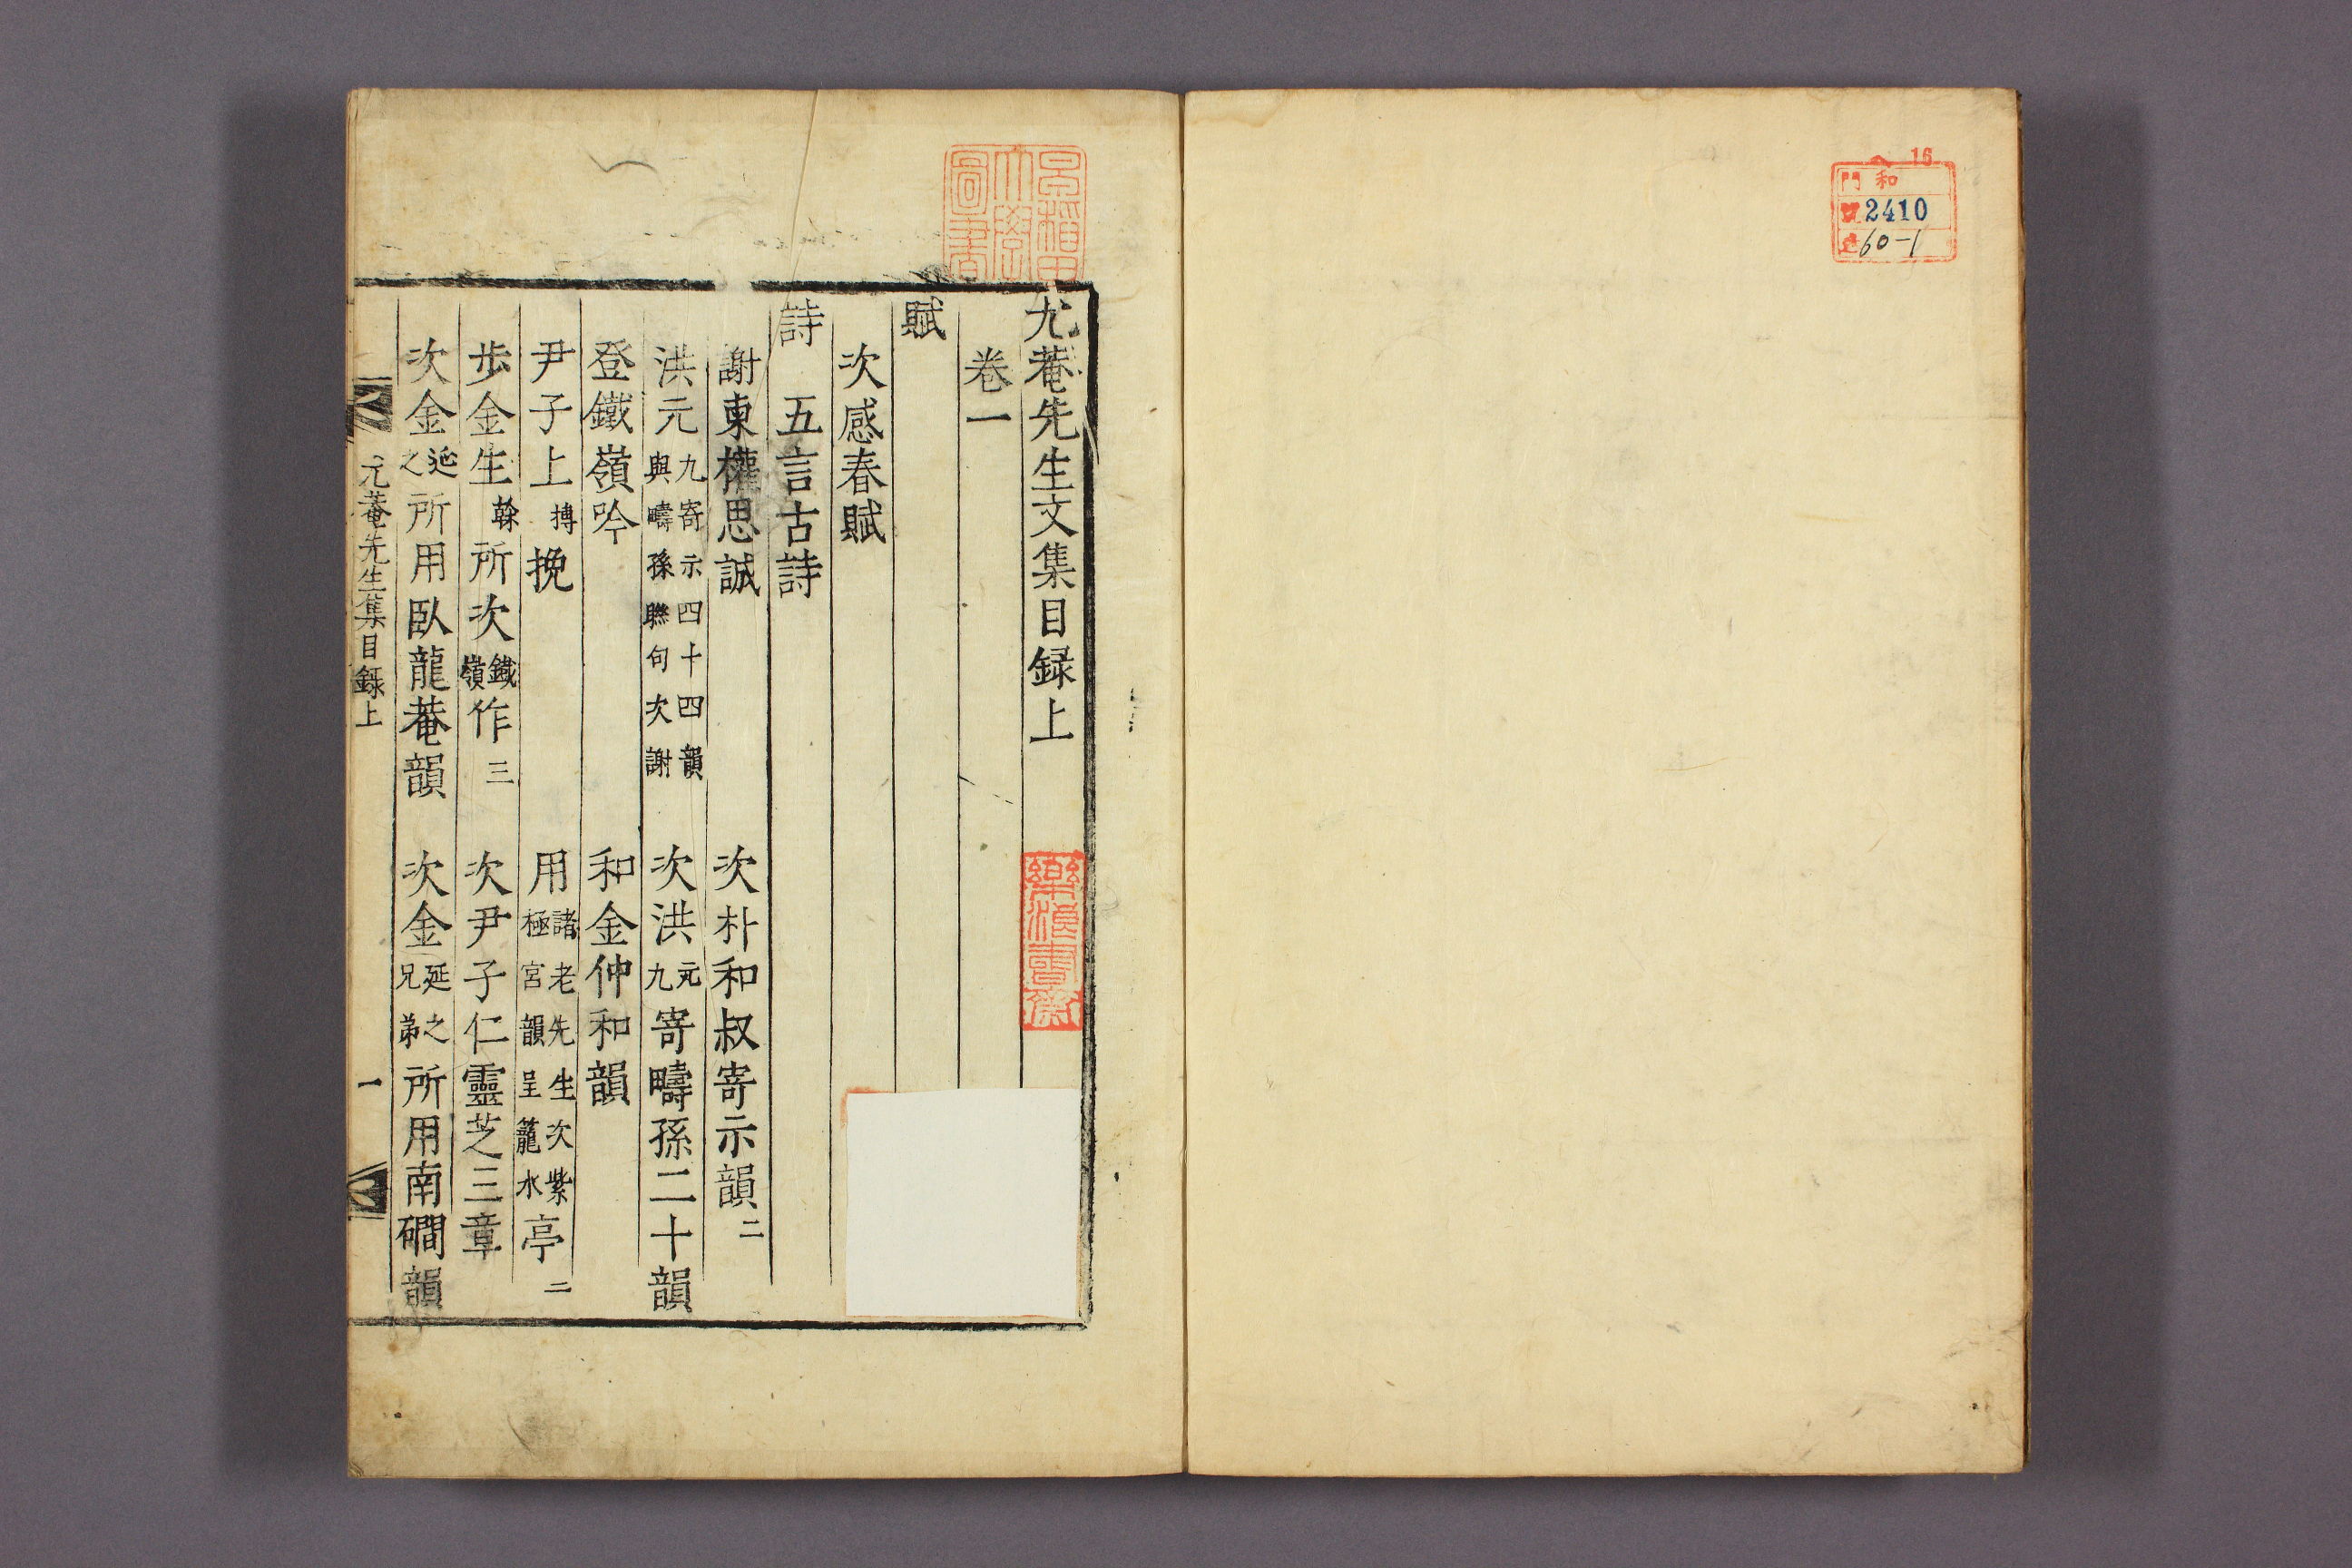 16
門 和
號 2410
卷 60-1
早稲田大學圖書
尤菴先生文集目録上
樂浪書齋
卷一
賦
次感春賦
詩 五言古詩
謝東權思誠 次朴和叔寄示韻二
洪元九寄示四十四韻與疇孫聯句次謝 次洪元九寄疇孫二十韻
登鐵嶺吟 和金仲和韻
尹子上摶挽 用諸老先生次紫極宮韻呈籠水亭二
歩金生榦所次鐵嶺作三 次尹子仁靈芝三章
次金延之所用臥龍菴韻 次金延之兄弟所用南磵韻
尤菴先生集目録上 一